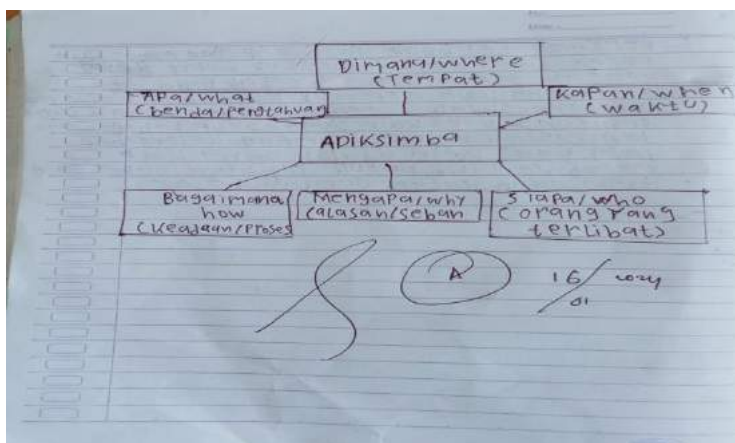 Dimana/where
(Tempat)
APa/what
(benda/Pengtahuan
KaPan/when
(waktu)
ADIKSimba
Bagaimana/
how
(Keadaan/Proses
Mengapa/why
(alasan/seban
SiaPa/who
(orang yang
terlibat)
A
16/
01